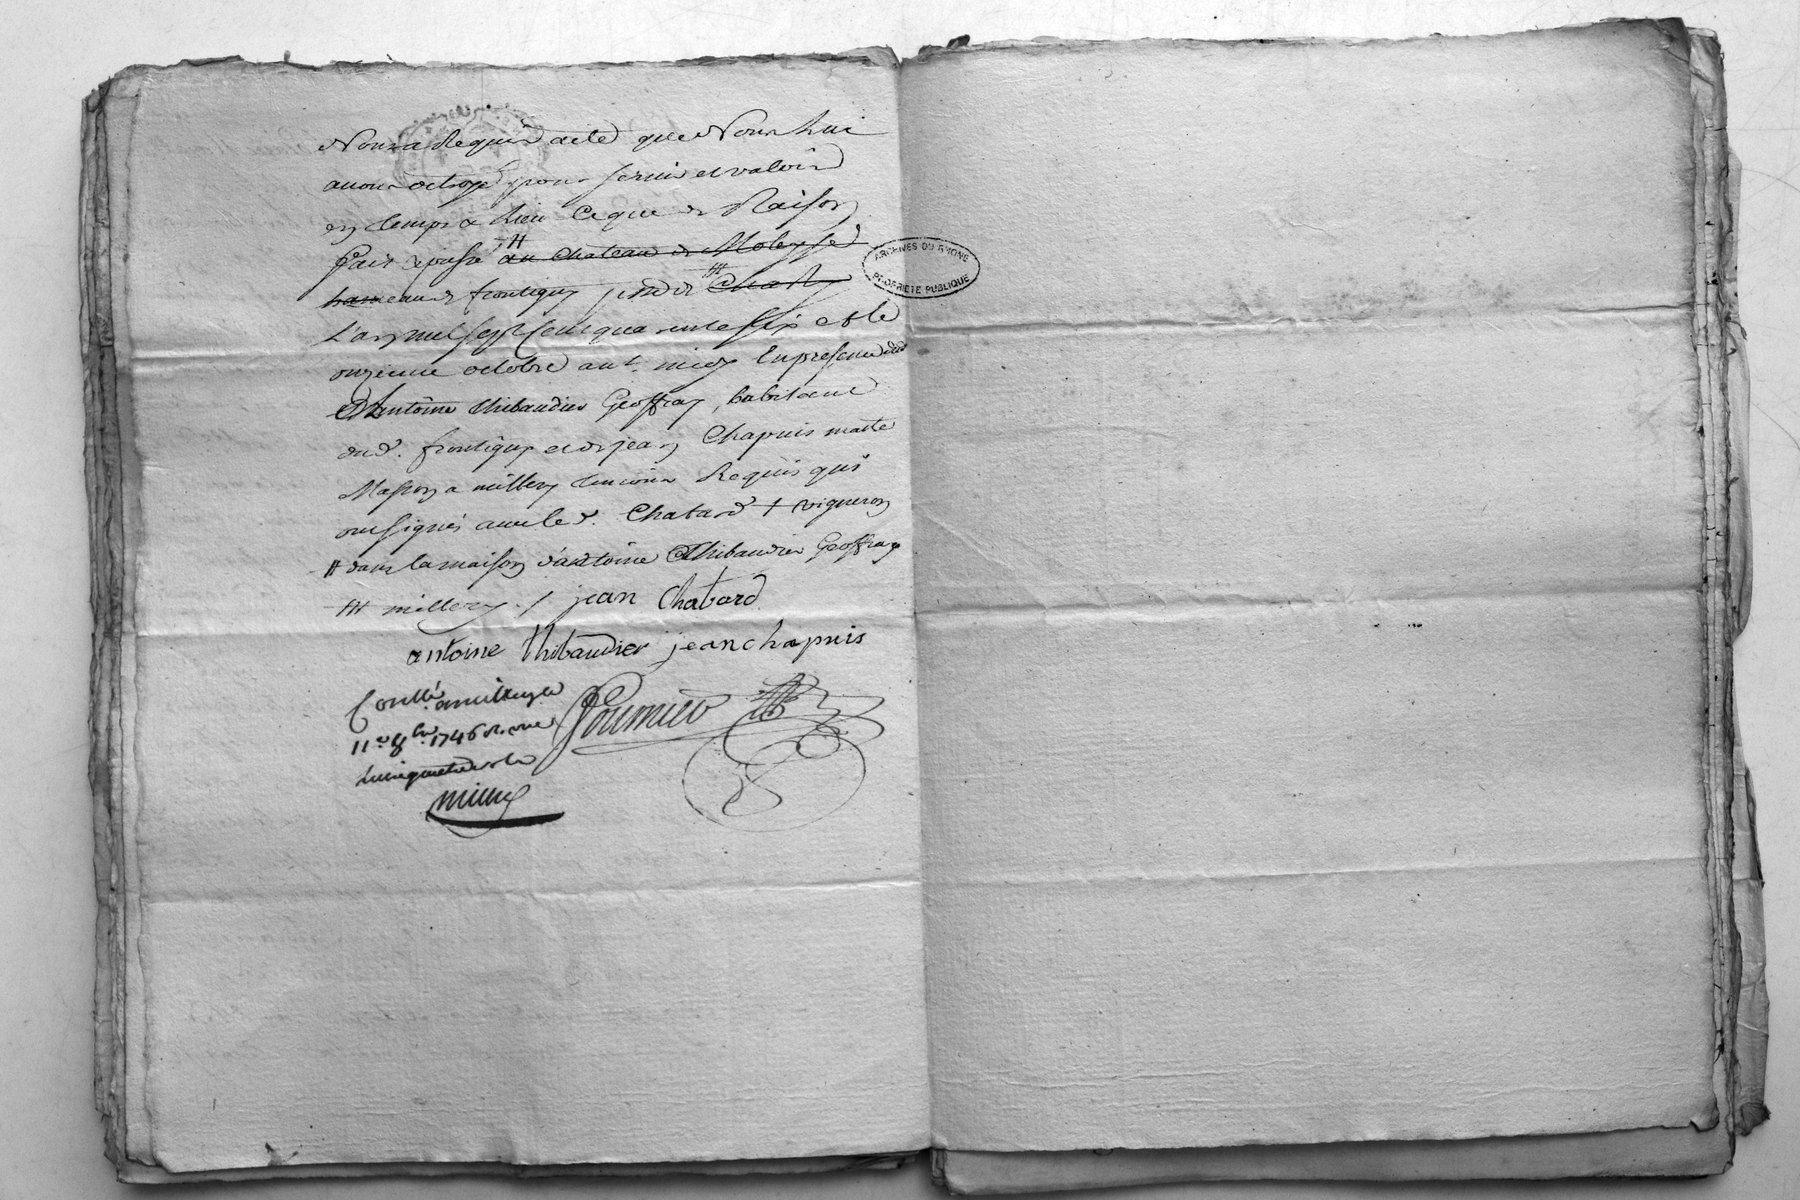 Nous a Requis acte que Nous Lui
avons octroyé pour servir et valoir
en temps & lieu ce que de Raison
fait & passé # au Chateau de Molesse
hameau de frontigny
L'an mil sept cent quarente six & le
onzieme octobre avt. midy En presence
d'Antoine thibaudier Geoffray, habitant
dud. frontigny et de jean Chapuis maitre
Masson a millery temoins Requis qui
ont signés avec led. Chatard + vigneron
# dans la maison d'antoine Thibaudier Geoffray
### millery ./. jean Chatard
antoine thibaudier jean chapuis
Conllé a millery le
11e 8bre 1746
fournier
ARCHIVES DU RHONE
PROPRIETE PUBLIQUE